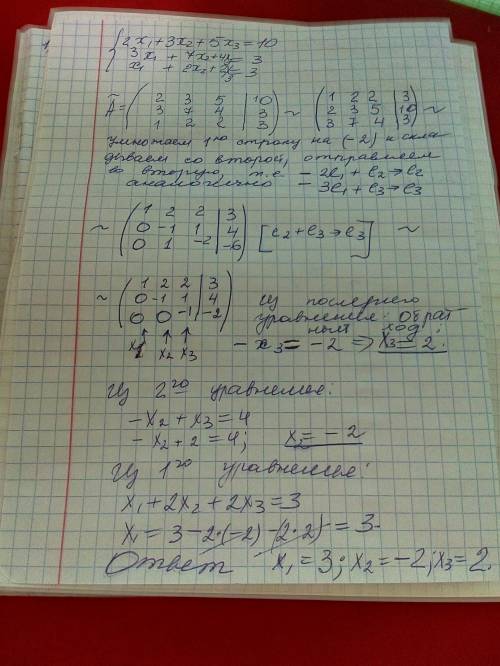 2x₁+3x₂+5x₃=10
3x₁ + 7x₂+4x₃ = 3
x₁ + 2x₂+2x₃ = 3
Ã = ( 2 3 5 | 10 ) ~ ( 1 2 2 | 3 ) ~
3 7 4 | 3    2 3 5 | 10
1 2 2 | 3    3 7 4 | 3
умножаем 1ую строку на (-2) и скла
дываем со второй, отправляем
во вторую, т.е - 2l₁ + l₂ → l₂
аналогично - 3l₁ + l₃ → l₃
~ ( 1 2 2 | 3 )
0 -1 1 | 4 [ l₂ + l₃ → l₃ ] ~
0 1 -2 | -6
~ ( 1 2 2 | 3 )
0 -1 1 | 4 из последнего
0 0 -1 | -2 уравнения: обрат
↑ ↑ ↑ ный ход:
x₁ x₂ x₃ - x₃ = -2 => x₃ = 2.
Из 2го уравнения:
-x₂ + x₃ = 4
-x₂ + 2 = 4; x₂ = -2
Из 1го уравнения:
x₁ + 2x₂ + 2x₃ = 3
x₁ = 3 - 2·(-2) - (2·2) = 3.
Ответ x₁ = 3; x₂ = -2; x₃ = 2.